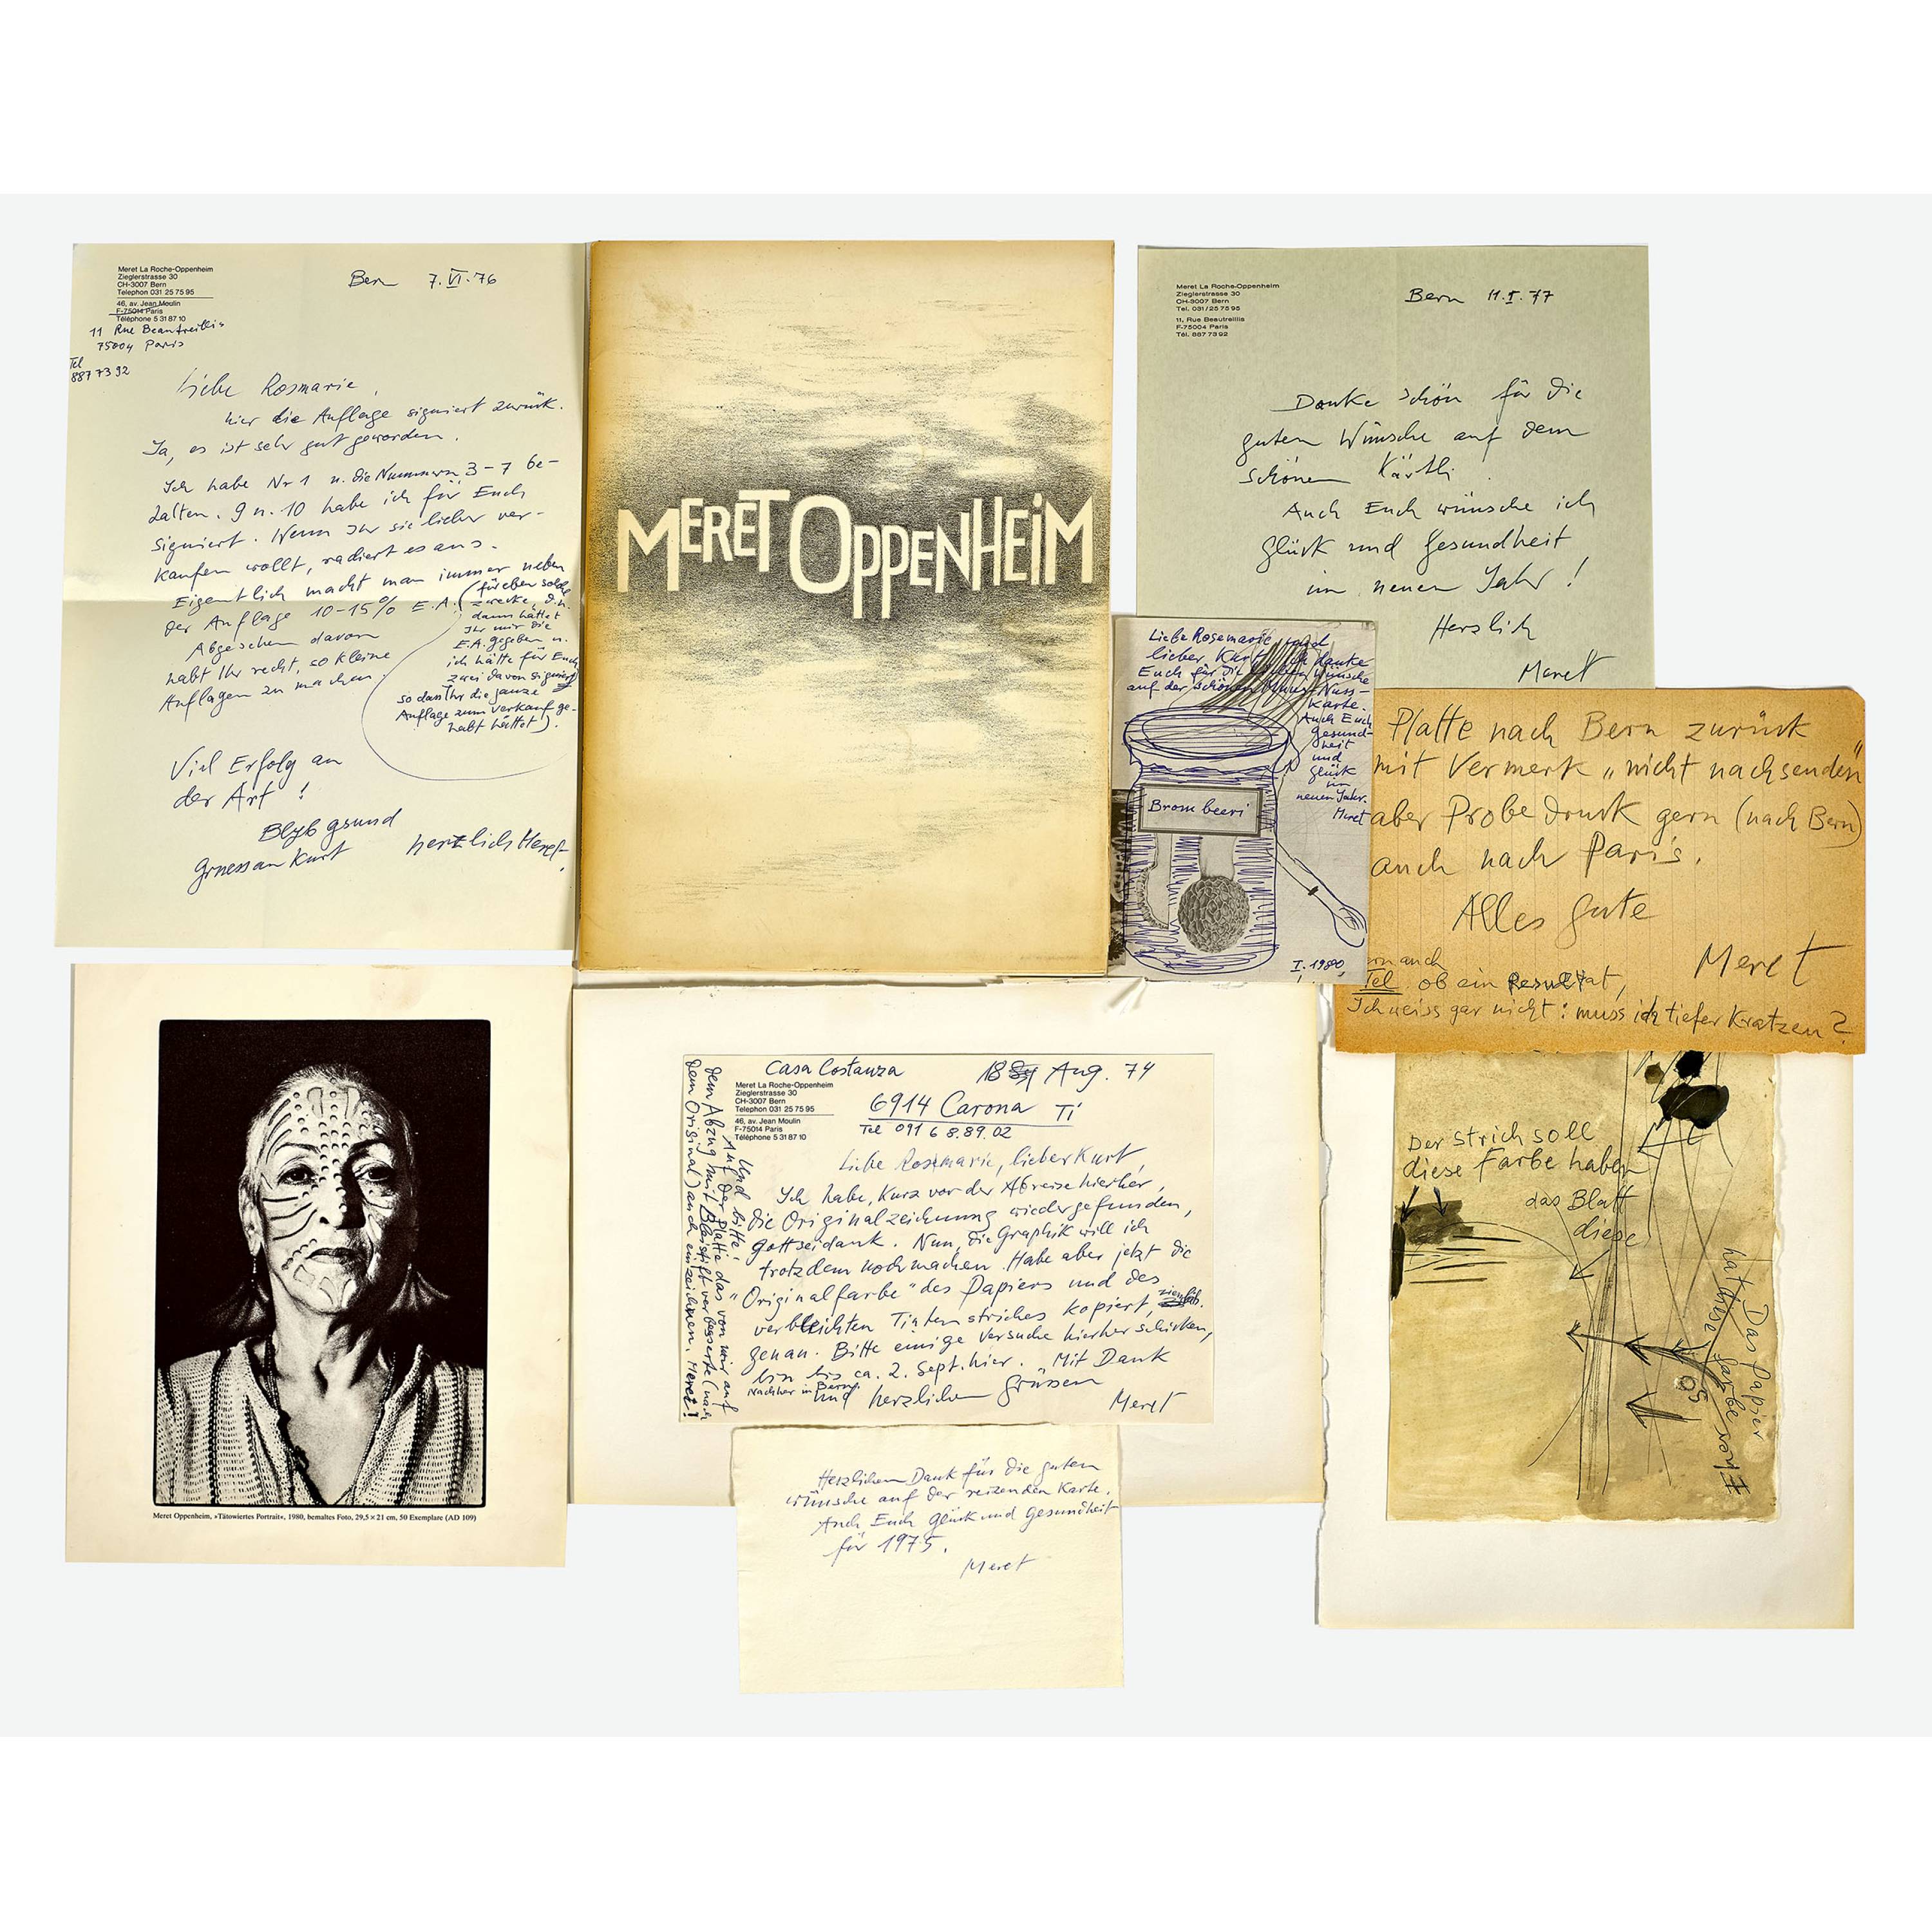 Meret La Roche-Oppenheim
Zieglerstrasse 30
CH-3007 Bern
Telephon 031 25 75 95
46, av. Jean Moulin
F-75014 Paris
Téléphone 5 31 87 10
11 Rue Beautreillis
75004 Paris
Tel
887 73 92
Bern 7. VI. 76
Liebe Rosmarie,
hier die Auflage signiert zurück.
Ja, es ist sehr gut geworden.
Ich habe Nr 1 u. die Nummern 3-7 be-
halten. 9 u. 10 habe ich für Euch
signiert. Wenn Ihr sie lieber ver-
kaufen wollt, radiert es aus.
Eigentlich macht man immer neben
der Auflage 10-15% E.A. (für eben solche
zwecke, d.h.
dann hättet
Ihr mir die
E.A. gegeben u.
ich hätte für Euch
zwei davon signiert
so dass Ihr die ganze
Auflage zum verkauf ge-
habt hättet).
Abgesehen davon
habt Ihr recht, so kleine
Auflagen zu machen.
Viel Erfolg an
der Art!
Blyb gsund
Gruess an Kurt herzlich Meret
MERET OPPENHEIM
Meret La Roche-Oppenheim
Zieglerstrasse 30
CH-3007 Bern
Tel. 031/25 75 95
11, Rue Beautreillis
F-75004 Paris
Tél. 887 73 92
Bern 11. I. 77
Danke schön für die
guten Wünsche auf dem
schönen Kärtli.
Auch Euch wünsche ich
Glück und Gesundheit
im neuen Jahr!
Herzlich
Meret
Liebe Rosemarie und
lieber Kurt ich danke
Euch für die Wünsche
auf der schönen Nuss-
Karte.
Auch Euch
Gesund-
heit
und
Glück
im
neuen Jahr.
Meret
Brombeeri
I. 1980
Platte nach Bern zurück
mit Vermerk „nicht nachsenden"
aber Probedruck gern (nach Bern)
auch nach Paris.
Alles Gute
Meret
auch
Tel. ob ein Resultat,
Ich weiss gar nicht: muss ich tiefer Kratzen?
Meret Oppenheim, »Tätowiertes Portrait«, 1980, bemaltes Foto, 29,5 × 21 cm, 50 Exemplare (AD 109)
Casa Costanza
Meret La Roche-Oppenheim
Zieglerstrasse 30
CH-3007 Bern
Telephon 031 25 75 95
46, av. Jean Moulin
F-75014 Paris
Téléphone 5 31 87 10
18 Aug. 74
6914 Carona Ti
Tel 091 6 8.89.02
Liebe Rosmarie, lieber Kurt,
Ich habe, kurz vor der Abreise hierher,
die Originalzeichnung wiedergefunden,
gottseidank. Nun, die Graphik will ich
trotzdem noch machen. Habe aber jetzt die
"Originalfarbe" des Papiers und des
verbleichten Tintenstriches kopiert, ziemlich
genau. Bitte einige Versuche hierher schicken,
bin bis ca. 2. Sept. hier. Mit Dank
Nachher in Bern.
und herzlichen Grüssen
Meret
Und bitte!
Auf der Platte das von mir auf
dem Abzug mit Bleistift verbesserte (nach
dem Original) auch einzeichnen. Meret!
Herzlichen Dank für die guten
wünsche auf der reizenden Karte.
Auch Euch Glück und Gesundheit
für 1975.
Meret
Der Strich soll
diese Farbe haben
das Blatt
diese
Das Papier
hat diese Farbe